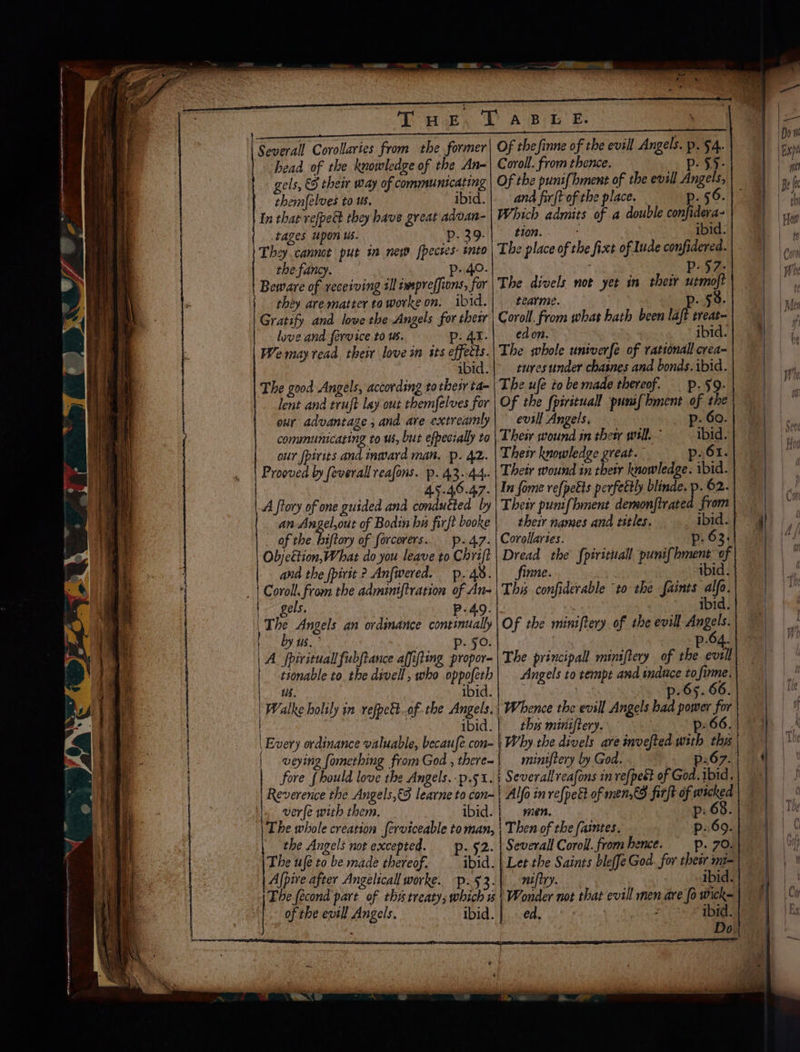 THE TABLE.
Severall Corollaries from the former
head of the knowledge of the An-
gels, & their way of communicating
themſelves to us. ibid.
In that reſpect they have great advan-
tages upon us. p. 39.
They cannot put in new ſpecies into
the fancy. p. 40.
Beware of receiving ill impreſſions, for
they are matter to worke on. ibid.
Gratify and love the Angels for their
love and ſervice to us. p. 41.
We may read their love in its effects.
ibid.
The good Angels, according to their ta-
lent and truſt lay out themſelves for
our advantage, and are extreamly
communicating to us, but eſpecially to
our ſpirits and inward man. p. 42.
Prooved by ſeverall reaſons. p. 43. 44.
45. 46. 47.
A ſtory of one guided and conducted by
an Angel, out of Bodin his firſt booke
of the hiſtory of ſorcerers. p. 47.
Objection, What do you leave to Chriſt
and the ſpirit? Anſwered. p. 48.
Coroll. from the adminiſtration of An-
gels. p. 49.
The Angels an ordinance continually
by us. p. 50.
A ſpirituall ſubſtance aſſiſting propor-
tionable to the divell, who oppoſeth
us. ibid.
Walke holily in reſpect of the Angels.
ibid.
Every ordinance valuable, becauſe con-
veying ſomething from God, there-
fore ſhould love the Angels. p. 51.
Reverence the Angels, & learne to con-
verſe with them. ibid.
The whole creation ſerviceable to man,
the Angels not excepted. p. 52.
The uſe to be made thereof. ibid.
Aſpire after Angelicall worke. p. 53.
The ſecond part of this treaty, which is
of the evill Angels. ibid.
Of the ſinne of the evill Angels. p. 54.
Coroll. from thence. p. 55.
Of the puniſhment of the evill Angels,
and firſt of the place. p. 56.
Which admits of a double conſidera-
tion. ibid.
The place of the fixt of Iude conſidered.
p. 57.
The divels not yet in their utmoſt
tearme. p. 58.
Coroll. from what hath been laſt treat-
ed on. ibid.
The whole univerſe of rationall crea-
tures under chaines and bonds. ibid.
The uſe to be made thereof. p. 59.
Of the ſpirituall puniſhment of the
evill Angels. p. 60.
Their wound in their will. ibid.
Their knowledge great. p. 61.
Their wound in their knowledge. ibid.
In ſome reſpects perfectly blinde. p. 62.
Their puniſhment demonſtrated from
their names and titles. ibid.
Corollaries. p. 63.
Dread the ſpirituall puniſhment of
ſinne. ibid.
This conſiderable to the ſaints alſo.
ibid.
Of the miniſtery of the evill Angels.
p. 64.
The principall miniſtery of the evill
Angels to tempt and induce to ſinne.
p. 65. 66.
Whence the evill Angels had power for
this miniſtery. p. 66.
Why the divels are inveſted with this
miniſtery by God. p. 67.
Severall reaſons in reſpect of God. ibid.
Alſo in reſpect of men, & firſt of wicked
men. p. 68.
Then of the ſaintes. p. 69.
Severall Coroll. from hence. p. 70.
Let the Saints bleſſe God for their mi-
niſtry. ibid.
Wonder not that evill men are ſo wick-
ed. ibid.
Do